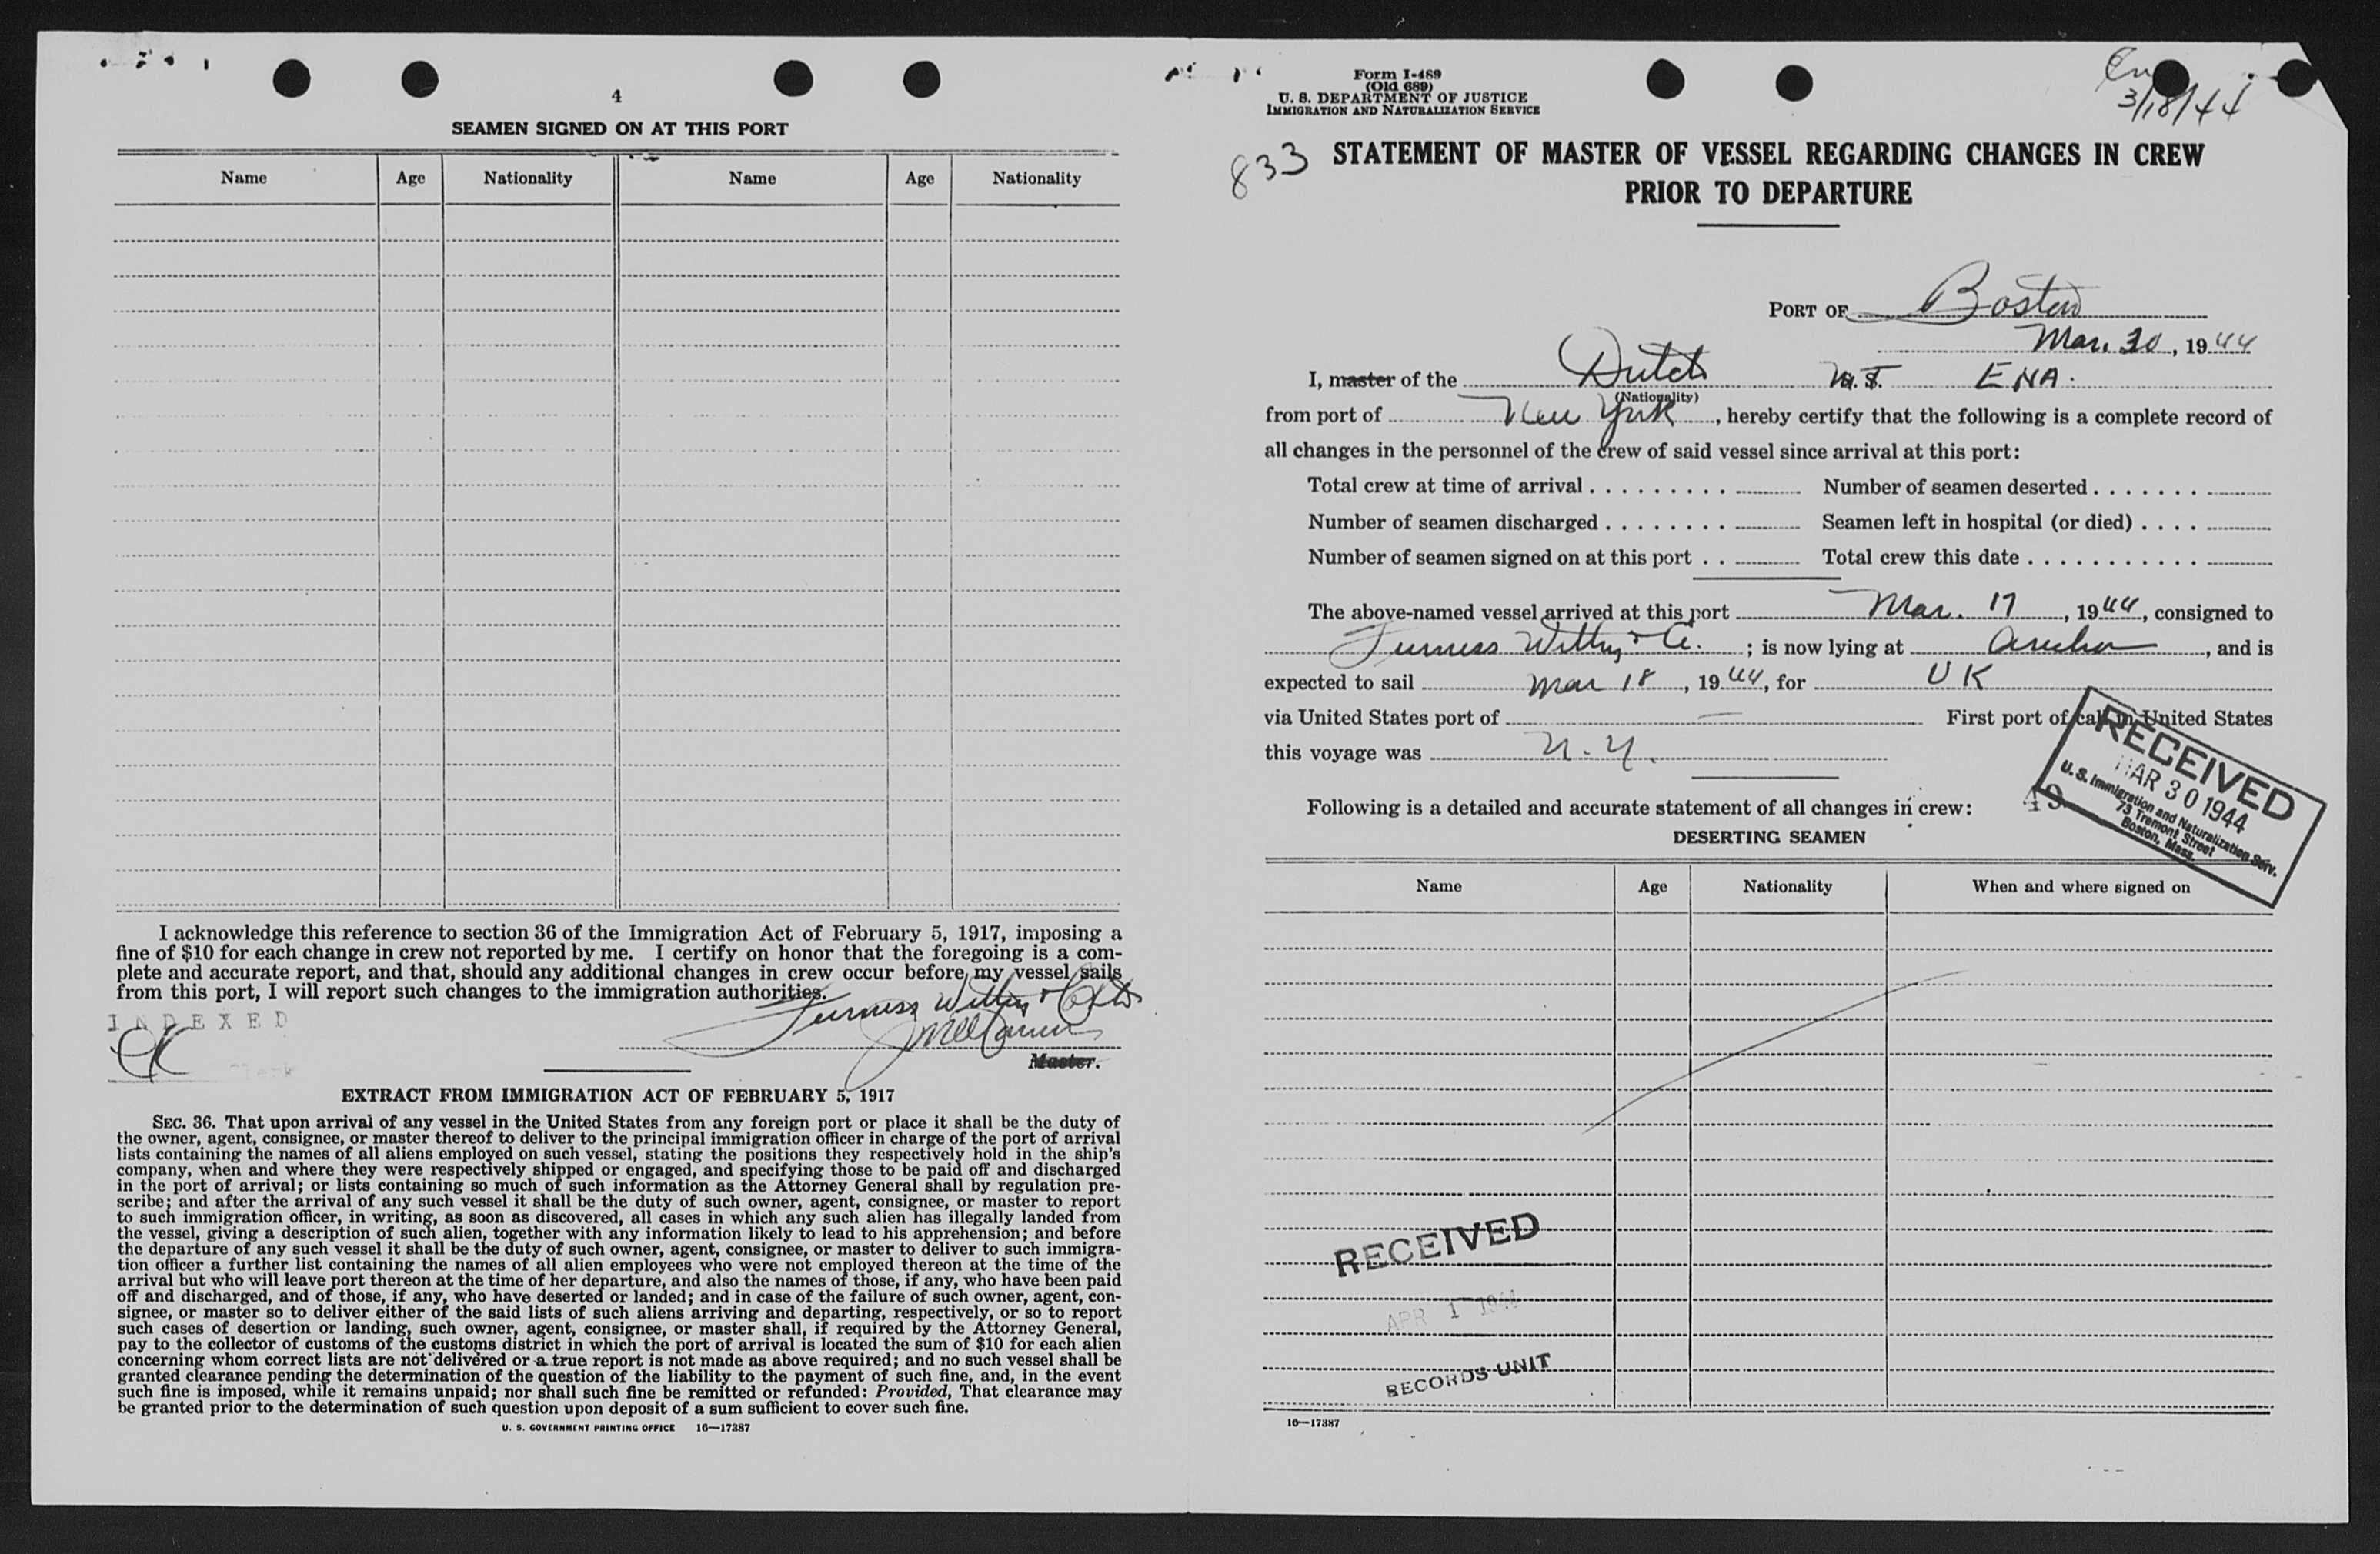 4
SEAMEN SIGNED ON AT THIS PORT
Name Age Nationality Name Age Nationality
I acknowledge this reference to section 36 of the Immigration Act of February 5, 1917, imposing a
fine of $10 for each change in crew not reported by me. I certify on honor that the foregoing is a com-
plete and accurate report, and that, should any additional changes in crew occur before my vessel sails
from this port, I will report such changes to the immigration authorities.
Furness Withy & Co Ltd
INDEXED
Master.
EXTRACT FROM IMMIGRATION ACT OF FEBRUARY 5, 1917
SEC. 36. That upon arrival of any vessel in the United States from any foreign port or place it shall be the duty of
the owner, agent, consignee, or master thereof to deliver to the principal immigration officer in charge of the port of arrival
lists containing the names of all aliens employed on such vessel, stating the positions they respectively hold in the ship's
company, when and where they were respectively shipped or engaged, and specifying those to be paid off and discharged
in the port of arrival; or lists containing so much of such information as the Attorney General shall by regulation pre-
scribe; and after the arrival of any such vessel it shall be the duty of such owner, agent, consignee, or master to report
to such immigration officer, in writing, as soon as discovered, all cases in which any such alien has illegally landed from
the vessel, giving a description of such alien, together with any information likely to lead to his apprehension; and before
the departure of any such vessel it shall be the duty of such owner, agent, consignee, or master to deliver to such immigra-
tion officer a further list containing the names of all alien employees who were not employed thereon at the time of the
arrival but who will leave port thereon at the time of her departure, and also the names of those, if any, who have been paid
off and discharged, and of those, if any, who have deserted or landed; and in case of the failure of such owner, agent, con-
signee, or master so to deliver either of the said lists of such aliens arriving and departing, respectively, or so to report
such cases of desertion or landing, such owner, agent, consignee, or master shall, if required by the Attorney General,
pay to the collector of customs of the customs district in which the port of arrival is located the sum of $10 for each alien
concerning whom correct lists are not delivered or a true report is not made as above required; and no such vessel shall be
granted clearance pending the determination of the question of the liability to the payment of such fine, and, in the event
such fine is imposed, while it remains unpaid; nor shall such fine be remitted or refunded: Provided, That clearance may
be granted prior to the determination of such question upon deposit of a sum sufficient to cover such fine.
U. S. GOVERNMENT PRINTING OFFICE 16—17387
Form I-489
(Old 689)
U. S. DEPARTMENT OF JUSTICE
IMMIGRATION AND NATURALIZATION SERVICE
3/18/44
833
STATEMENT OF MASTER OF VESSEL REGARDING CHANGES IN CREW
PRIOR TO DEPARTURE
PORT OF Boston
Mar. 30, 1944
I, master of the Dutch M.S. ENA.
(Nationality)
from port of New York, hereby certify that the following is a complete record of
all changes in the personnel of the crew of said vessel since arrival at this port:
Total crew at time of arrival Number of seamen deserted
Number of seamen discharged Seamen left in hospital (or died)
Number of seamen signed on at this port Total crew this date
The above-named vessel arrived at this port Mar. 17, 1944, consigned to
Furness Withy & Co.; is now lying at Anchor, and is
expected to sail Mar 18, 1944, for UK
via United States port of — First port of call in United States
this voyage was N.Y.
RECEIVED
MAR 30 1944
U. S. Immigration and Naturalization Serv.
73 Tremont Street
Boston, Mass.
49
Following is a detailed and accurate statement of all changes in crew:
DESERTING SEAMEN
Name Age Nationality When and where signed on
RECEIVED
APR 1 1944
RECORDS UNIT
16—17387